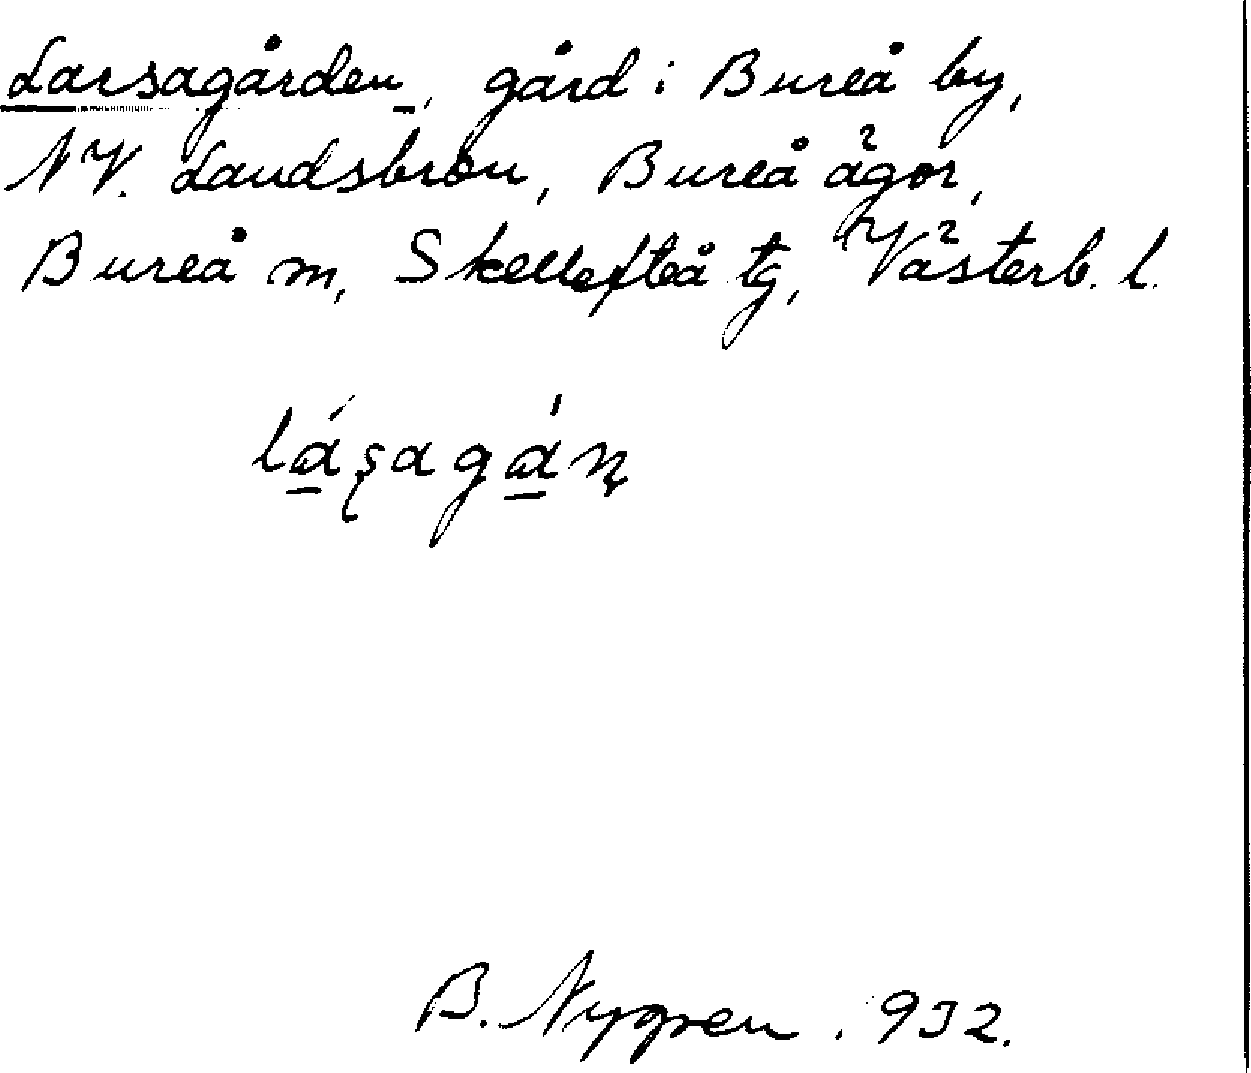 Larsagården, gård i Bureå by,
NV. Landsbron, Bureå ägor,
Bureå m, Skellefteå tg, Västerb. l.
lása̱gá̱n̥
B. Nygren. 932.